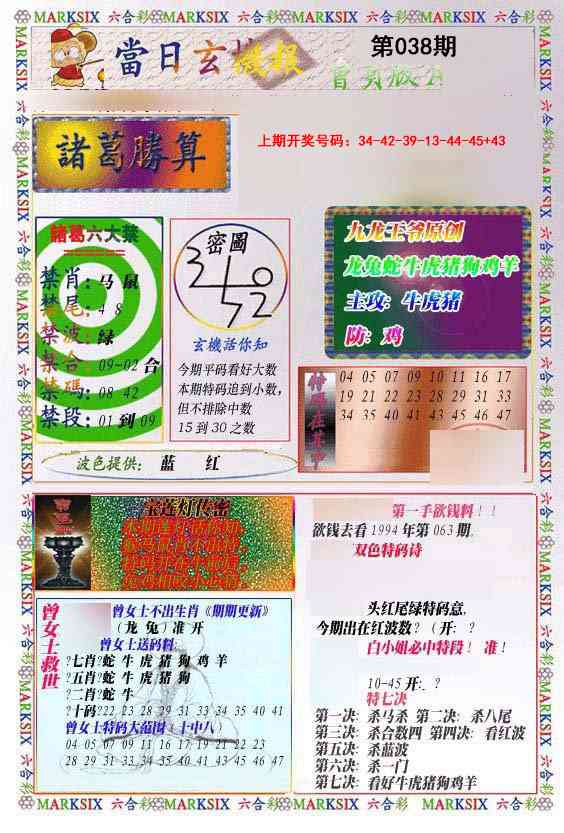 MARKSIX 六合彩 MARKSIX 六合彩 MARKSIX 六合彩 MARKSIX 六合彩 MARKSIX 六合彩
當日玄機報
第038期
諸葛勝算
上期开奖号码：34-42-39-13-44-45+43
諸葛六大禁
禁肖：马 鼠
禁尾：4 8
禁波：绿
禁合：09-02 合
禁碼：08 42
禁段：01 到 09
密圖
玄機活你知
今期平码看好大数
本期特码追到小数，
但不排除中数
15 到 30 之数
九龙王爷原创
龙兔蛇牛虎猪狗鸡羊
主攻：牛虎猪
防：鸡
特碼在其中
04 05 07 09 10 11 16 17
19 21 22 23 28 29 31 33
34 35 40 41 43 45 46 47
波色提供： 蓝 红
宝莲灯传密
第一手欲钱料！！
欲钱去看 1994 年第 063 期。
双色特码诗
头红尾绿特码意，
今期出在红波数？（开：？
白小姐必中特段！ 准！
10-45 开:。?
特七决
第一决：杀马杀 第二决：杀八尾
第三决：杀合数四 第四决：看红波
第五决：杀蓝波
第六决：杀一门
第七决：看好牛虎猪狗鸡羊
曾女士救世
曾女士不出生肖《期期更新》
（龙 兔）准 开
曾女士送码料:
?七肖?蛇 牛 虎 猪 狗 鸡 羊
?五肖?蛇 牛 虎 猪 狗
?二肖?蛇 牛
?十码?22 23 28 29 31 33 34 35 40 41
曾女士特码大范围（十中八）
04 05 07 09 11 16 17 19 21 22 23
28 29 31 33 34 35 40 41 43 45 46 47
MARKSIX 六合彩 MARKSIX 六合彩 MARKSIX 六合彩 MARKSIX 六合彩 MARKSIX 六合彩